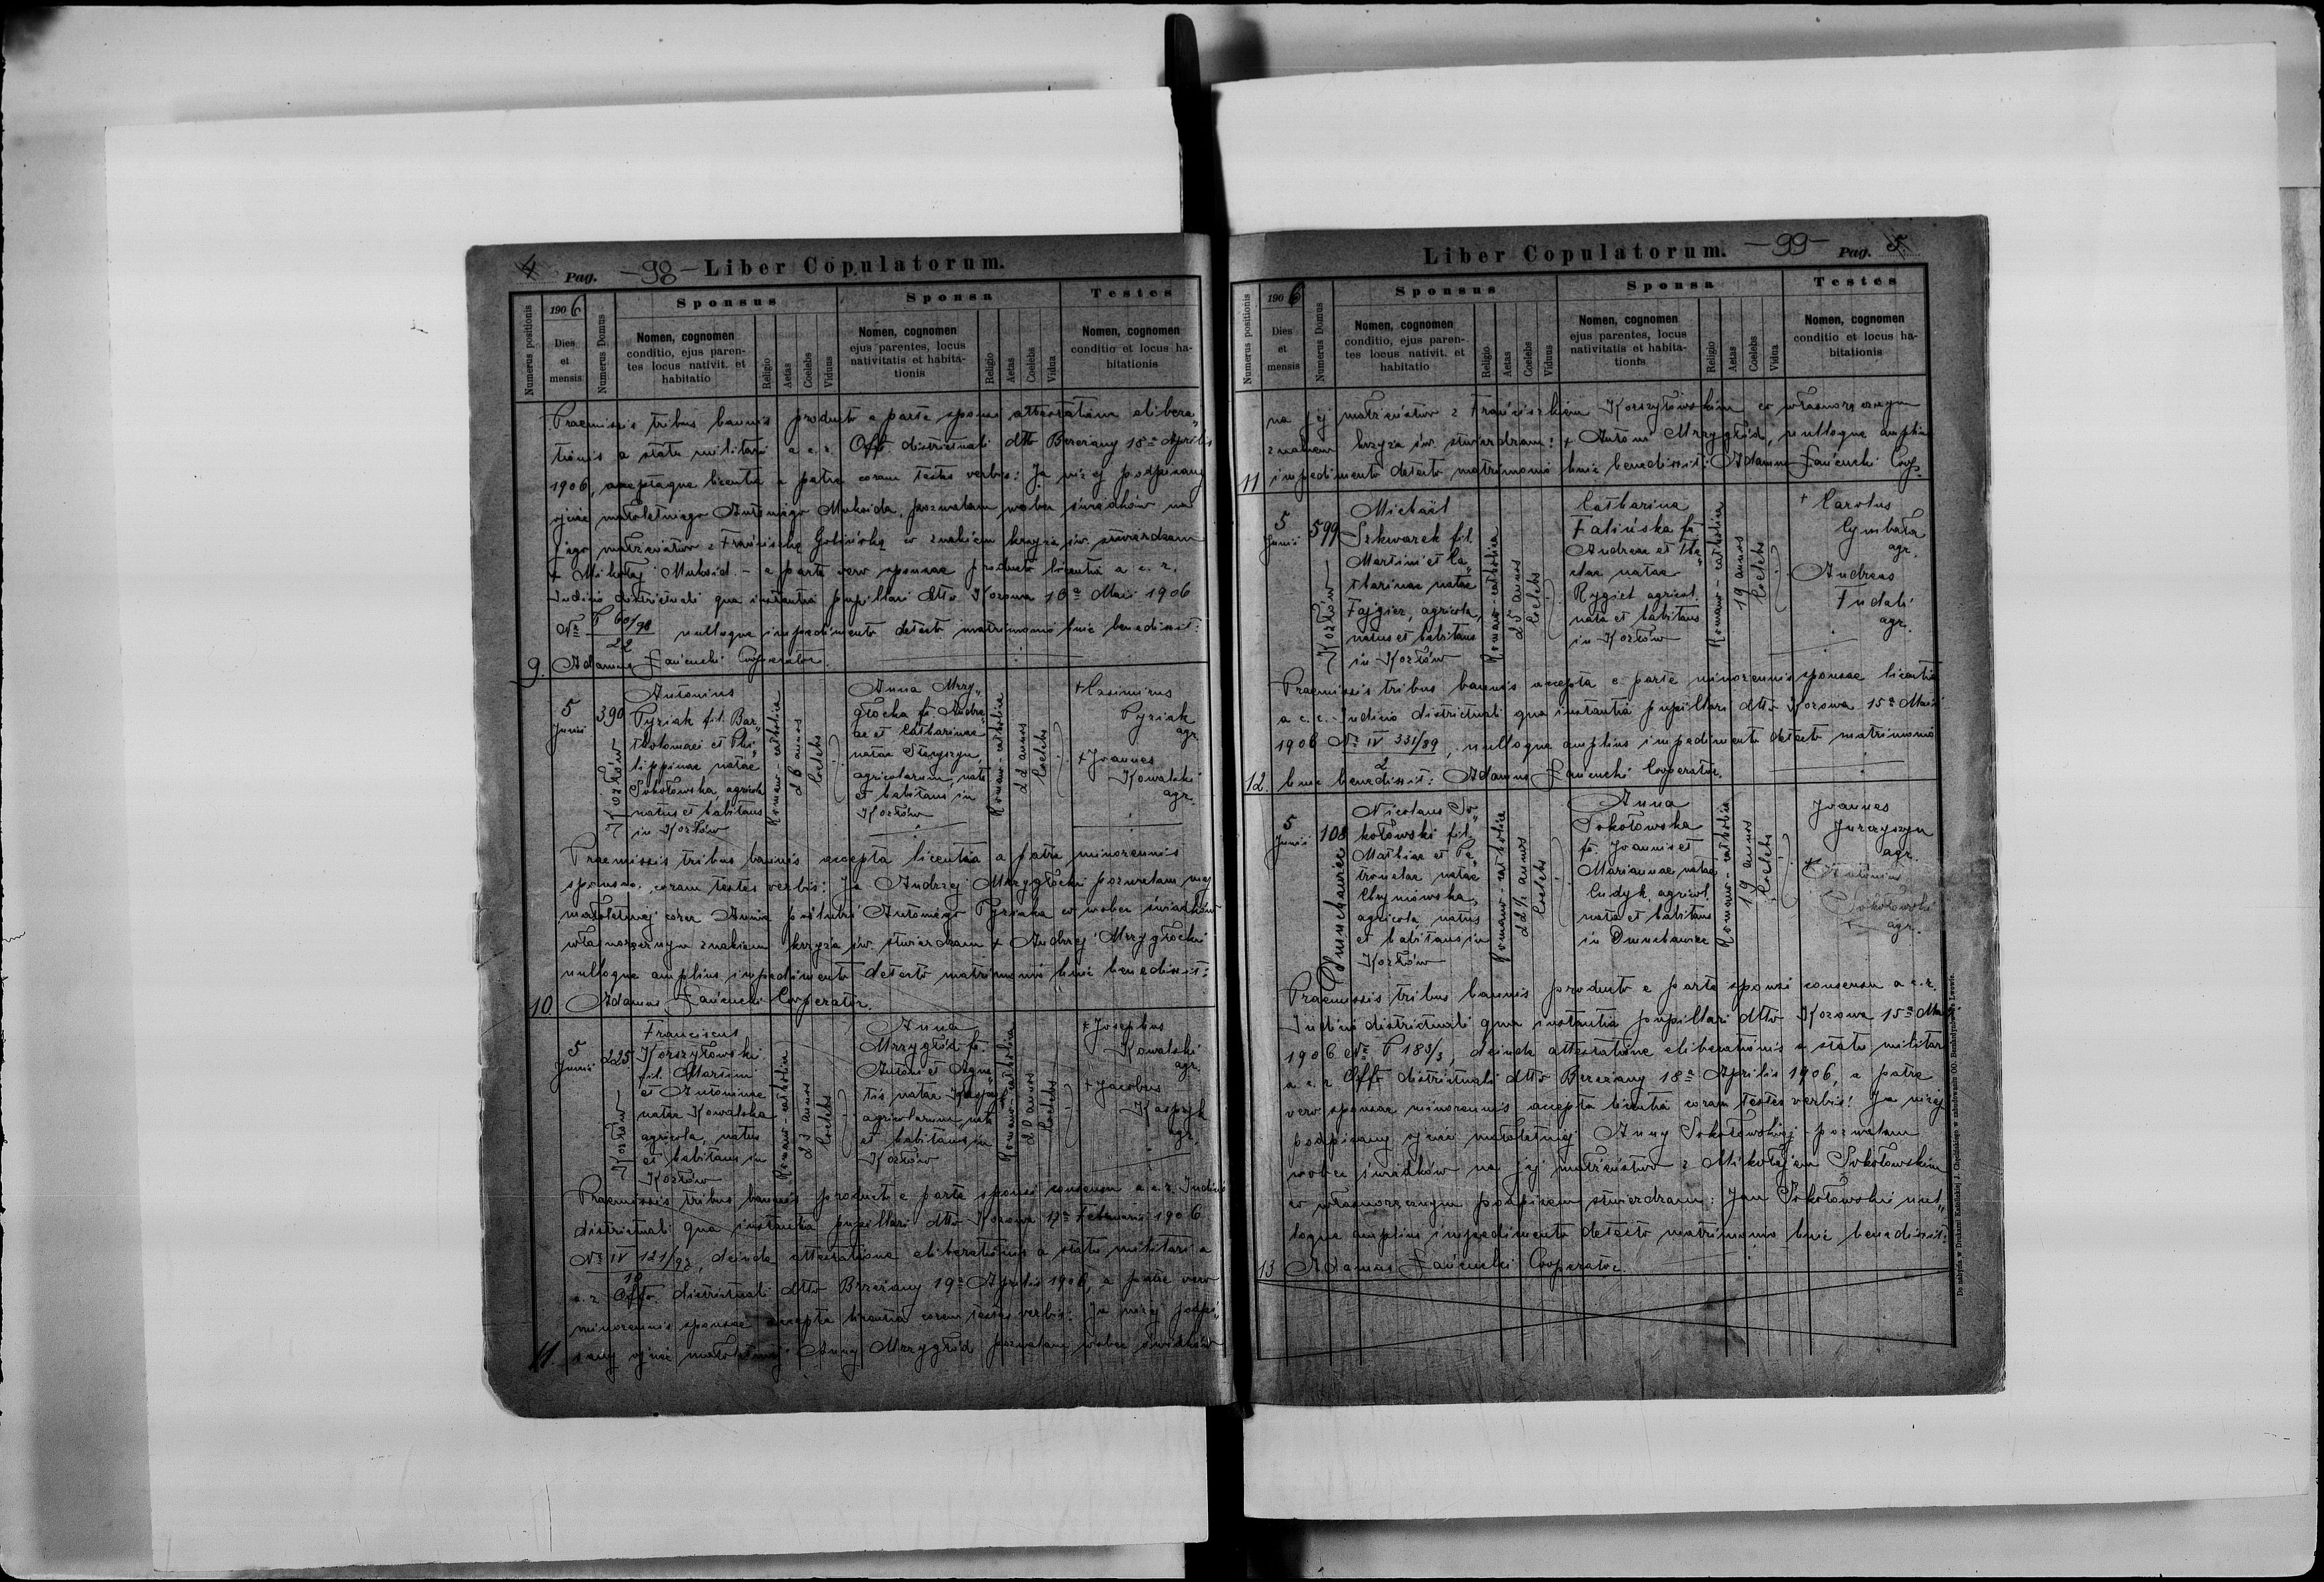 4 Pag. — 98 — Liber Copulatorum.
Numerus positionis
1906
Dies et mensis
Numerus Domus
Sponsus
Nomen, cognomen
conditio, ejus paren-
tes locus nativit. et
habitatio
Religio
Aetas
Coelebs
Viduus
Sponsa
Nomen, cognomen
ejus parentes, locus
nativitatis et habita-
tionis
Religio
Aetas
Coelebs
Vidua
Testes
Nomen, cognomen
conditio et locus ha-
bitationis
Praemissis tribus bannis producto e parte sponsi attestatione elibera„
tionis a statu militari a c. r. Offo districtuali dtto Brzeżany 18ª Aprilis
1906, acceptaque licentia a patre coram testes verbis: Ja niżej podpisany
ojciec małoletniego Antoniego Muksida, pozwalam wobec świadków na
jego małżeństwo z Franciszką Gołińską co znakiem krzyża św. stwierdzam
+ Mikołaj Muksid. – e parte vero sponsae producta licentia a c. r.
Judicio districtuali qua instantia pupillari dtto Kozowa 16ª Maii 1906
Nr P 60/98
22 nulloque impedimento detecto matrimonio huic benedixit:
9. Adamus Łańcucki Cooperator.
5
Junii
390
Kozłów
Antonius
Pyziak fil. Bar„
tholomaei et Phi„
lippinae natae
Sokołowska, agricola
natus et habitans
in Kozłów
Romano-catholica
26 annos
Coelebs
Anna Mrzy„
głocka fa Andre„
ae et Catharinae
natae Styryszyn,
agricolarum, nata
et habitans in
Kozłów
Romano-catholica
22 annos
Coelebs
+ Casimirus
Pyziak
agr.
+ Joannes
Kowalski
agr.
Praemissis tribus bannis accepta licentia a patre minorennis
sponsae coram testes verbis: Ja Andrzej Mrzygłocki pozwalam mej
małoletniej córce Annie poślubić Antoniego Pyziaka co wobec świadków
własnoręcznym znakiem krzyża św. stwierdzam + Andrzej Mrzygłocki
nulloque amplius impedimento detecto matrimonio huic benedixit:
10 Adamus Łańcucki Cooperator.
5
Junii
225
Kozłów
Franciscus
Korszyłowski
fil. Martini
et Antoninae
natae Kowalska
agricola, natus
et habitans in
Kozłów
Romano-catholica
25 annos
Coelebs
Anna
Mrzygłód fa.
Antoni et Agne„
tis natae
agricolarum, nata
et habitans in
Kozłów
Romano-catholica
20 annos
Coelebs
+ Josephus
Kowalski
agr.
+ Jacobus
Kasprzyk
agr.
Praemissis tribus bannis producto e parte sponsi consensu a c. r. Judicio
districtuali qua instantia pupillari dtto Kozowa 17ª Februarii 1906
Nr IV 121/92
10, deinde attestatione eliberationis a statu militari a
c. r. Offo. districtuali dtto Brzeżany 19ª Aprilis 1906, a patre vero
minorennis sponsae accepta licentia coram testes verbis: Ja niżej podpi„
sany ojciec małoletniej Anny Mrzygłód pozwalam wobec świadków
11.
Liber Copulatorum. — 99 — Pag. 5
Numerus positionis
1906
Dies et mensis
Numerus Domus
Sponsus
Nomen, cognomen
conditio, ejus paren-
tes locus nativit. et
habitatio
Religio
Aetas
Coelebs
Viduus
Sponsa
Nomen, cognomen
ejus parentes, locus
nativitatis et habita-
tionis
Religio
Aetas
Coelebs
Vidua
Testes
Nomen, cognomen
conditio et locus ha-
bitationis
na jej małżeństwo z Franciszkiem Korszyłowskim co własnoręcznym
znakiem krzyża św. stwierdzam: + Antoni Mrzygłód, nulloque amplius
11 impedimento detecto matrimonio huic benedixit: Adamus Łańcucki Coop.
5
Junii
599
Kozłów
Michaël
Szkwarek fil.
Martini et Ca„
tharinae natae
Fajgier, agricola,
natus et habitans
in Kozłów
Romano-catholica
25 annos
Coelebs
Catharina
Falińska fa
Andreae et
natae
Rygiel agricol.
nata et habitans
in Kozłów
Romano-catholica
19 annos
Coelebs
+ Carolus
Cymbała
agr.
Andreas
Fudali
agr.
Praemissis tribus bannis accepta e parte minorennis sponsae licentia
a c. r. Judicio districtuali qua instantia pupillari dtto Kozowa 15ª Maii
1906 Nr IV 331/89
2, nulloque amplius impedimento detecto matrimonio
12. huic benedixit: Adamus Łańcucki Cooperator.
5
Junii
108
Dmuchawiec
Nicolaus So„
kołowski fil.
Mathiae et Pe„
tronelae natae
Chyniowska,
agricola, natus
et habitans in
Kozłów
Romano-catholica
22½ annos
Coelebs
Anna
Sokołowska
fa. Joannis et
Mariannae natae
Cudyk, agricol.
nata et habitans
in Dmuchawiec
Romano-catholica
19 annos
Coelebs
Joannes
Jurczyszyn
agr.
+ Antonius
Sokołowski
agr.
Praemissis tribus bannis producto e parte sponsi consensu a c. r.
Judicio districtuali qua instantia pupillari dtto Kozowa 15ª Maii
1906 Nr P 183/3, deinde attestatione eliberationis a statu militari
a c. r. Offo districtuali dtto Brzeżany 18ª Aprilis 1906, a patre
vero sponsae minorennis accepta licentia coram testes verbis: Ja niżej
podpisany ojciec małoletniej Anny Sokołowskiej pozwalam
wobec świadków na jej małżeństwo z Mikołajem Sokołowskim
co własnoręcznym podpisem stwierdzam: Jan Sokołowski nul„
loque amplius impedimento detecto matrimonio huic benedixit:
13 Adamus Łańcucki Cooperator.
Do nabycia w Drukarni Katolickiej J. Chęcińskiego w zabudowaniu OO. Bernardynów we Lwowie.